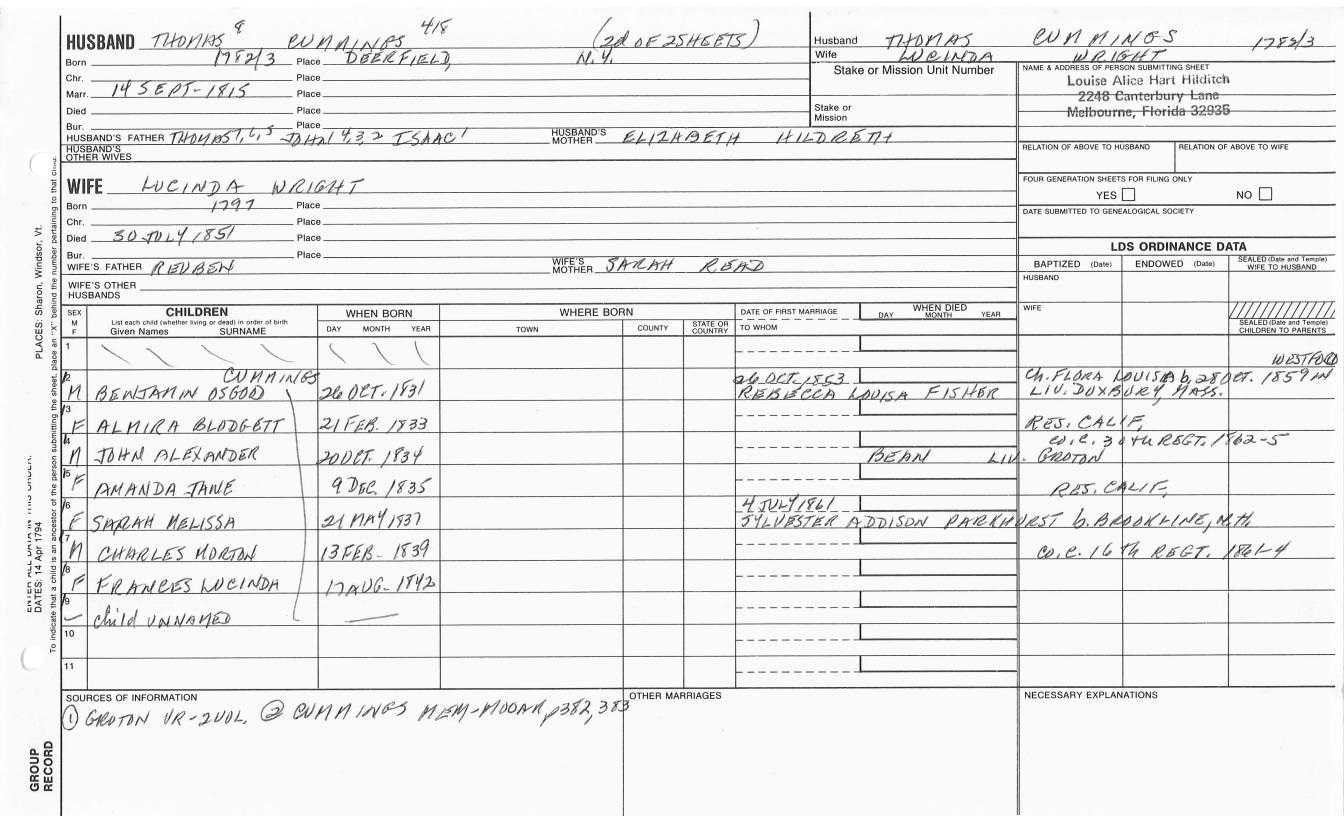 HUSBAND THOMAS 8 CUMMINGS 418 (2d OF 2 SHEETS)
Born 1782/3 Place DEERFIELD, N.Y.
Chr. Place
Marr. 14 SEPT-1815 Place
Died Place
Bur. Place
HUSBAND'S FATHER THOMAS 7, 6, 5 JOHN 4, 3, 2 ISAAC 1 HUSBAND'S MOTHER ELIZABETH HILDRETH
HUSBAND'S OTHER WIVES
WIFE LUCINDA WRIGHT
Born 1797 Place
Chr. Place
Died 30 JULY 1851 Place
Bur. Place
WIFE'S FATHER REUBEN WIFE'S MOTHER SARAH READ
WIFE'S OTHER HUSBANDS
Husband THOMAS CUMMINGS 1782/3
Wife LUCINDA WRIGHT
Stake or Mission Unit Number
Stake or Mission
NAME & ADDRESS OF PERSON SUBMITTING SHEET
Louise Alice Hart Hilditch
2246 Canterbury Lane
Melbourne, Florida 32935
RELATION OF ABOVE TO HUSBAND RELATION OF ABOVE TO WIFE
FOUR GENERATION SHEETS FOR FILING ONLY
YES NO
DATE SUBMITTED TO GENEALOGICAL SOCIETY
LDS ORDINANCE DATA
BAPTIZED (Date) ENDOWED (Date) SEALED (Date and Temple) WIFE TO HUSBAND
HUSBAND
WIFE
SEALED (Date and Temple) CHILDREN TO PARENTS
SEX M F
CHILDREN
List each child (whether living or dead) in order of birth
Given Names SURNAME
WHEN BORN
DAY MONTH YEAR
WHERE BORN
TOWN COUNTY STATE OR COUNTRY
DATE OF FIRST MARRIAGE
TO WHOM
WHEN DIED
DAY MONTH YEAR
1
WESTFORD
2 CUMMINGS 26 OCT. 1853 Ch. FLORA LOUISA b. 28 OCT. 1859 IN
M BENJAMIN OSGOOD 26 OCT. 1831 REBECCA LOUISA FISHER LIV. DUXBURY, MASS.
3
F ALMIRA BLODGETT 21 FEB. 1833 RES. CALIF,
4 CO. C. 30th REGT. 1862-5
M JOHN ALEXANDER 20 OCT. 1834 BEAN LIV. GROTON
5
F AMANDA JANE 9 DEC. 1835 RES. CALIF,
6 4 JULY 1861
F SARAH MELISSA 21 MAY 1837 SYLVESTER ADDISON PARKHURST b. BROOKLINE, N.H.
7
M CHARLES MORTON 13 FEB- 1839 CO. C. 16th REGT. 1861-4
8
F FRANCES LUCINDA 17 AUG- 1842
9
— Child UNNAMED —
10
11
SOURCES OF INFORMATION
① GROTON VR-2VOL. ② CUMMINGS MEM-MOOAR, p382, 383
OTHER MARRIAGES
NECESSARY EXPLANATIONS
PLACES: Sharon, Windsor, Vt.
ENTER ALL DATA IN THIS ORDER:
DATES: 14 Apr 1794
To indicate that a child is an ancestor of the person submitting the sheet, place an "X" behind the number pertaining to that child.
GROUP RECORD